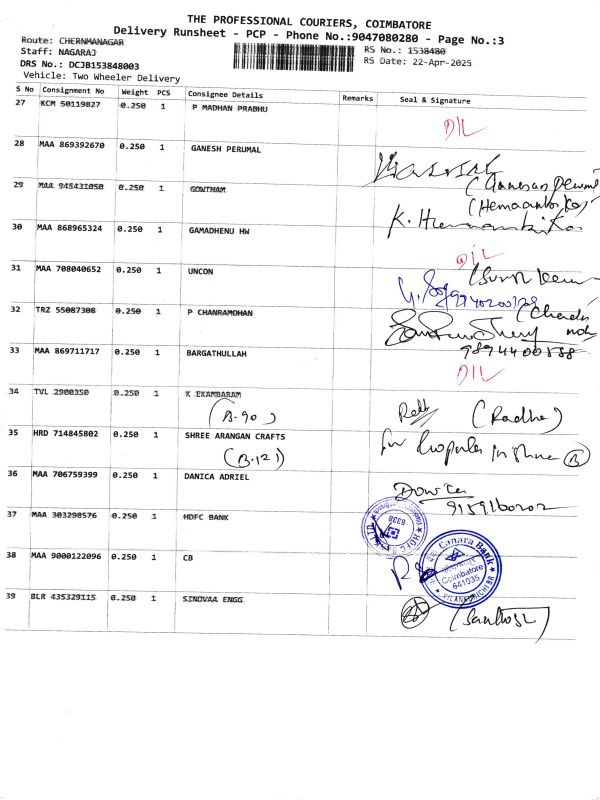 THE PROFESSIONAL COURIERS, COIMBATORE
Delivery Runsheet - PCP - Phone No.:9047080280 - Page No.:3
Route: CHERNMANAGAR
RS No.: 1538480
Staff: NAGARAJ
RS Date: 22-Apr-2025
DRS No.: DCJB153848003
Vehicle: Two Wheeler Delivery
S No Consignment No Weight PCS Consignee Details Remarks Seal & Signature
27 KCM 50119827 0.250 1 P MADHAN PRABHU
D/L
28 MAA 869392670 0.250 1 GANESH PERUMAL
29 MAA 945431050 0.250 1 GOWTHAM
30 MAA 868965324 0.250 1 GAMADHENU HW
D/L
31 MAA 708040652 0.250 1 UNCON
32 TRZ 55087308 0.250 1 P CHANRAMOHAN
9894400588
33 MAA 869711717 0.250 1 BARGATHULLAH
D/L
34 TVL 2900350 0.250 1 K EKAMBARAM
(B-90) (Radha)
35 HRD 714845802 0.250 1 SHREE ARANGAN CRAFTS
(B-121)
36 MAA 706759399 0.250 1 DANICA ADRIEL
9159160202
37 MAA 303298576 0.250 1 HDFC BANK
6338
38 MAA 9000122096 0.250 1 CB
Canara Bank
Coimbatore
641035
39 BLR 435329115 0.250 1 SINOVAA ENGG
(Santhosh)